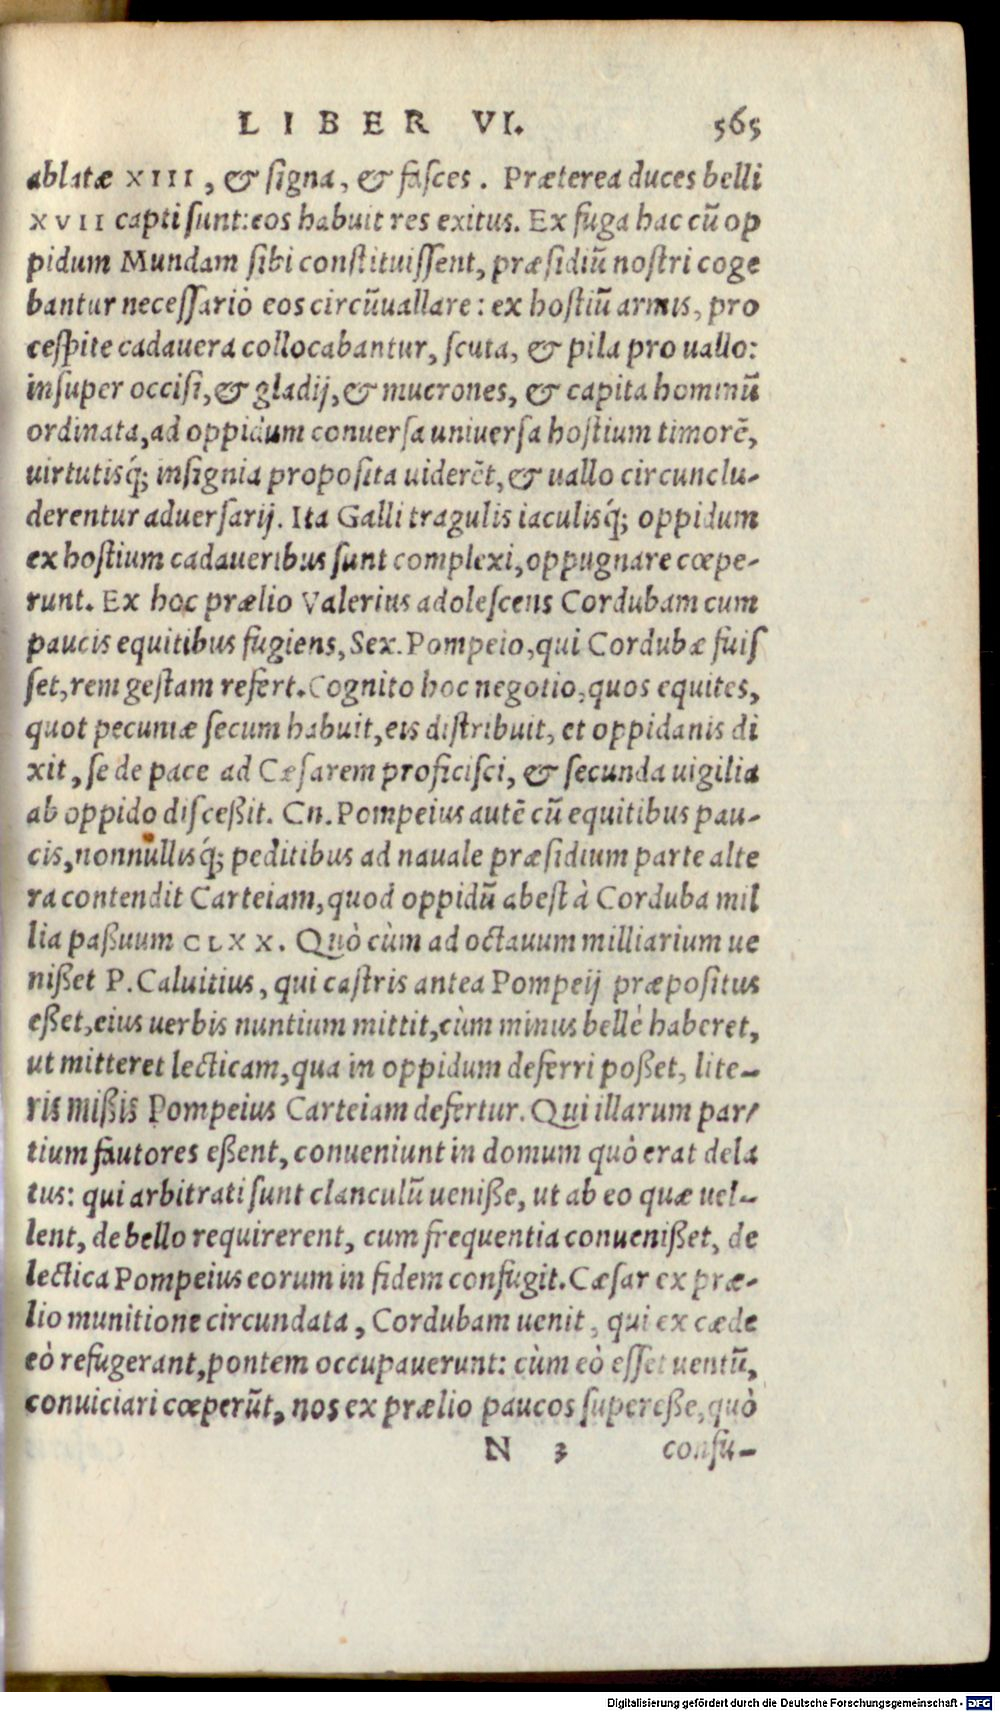 LIBER VI. 565
ablatæ XIII, & signa, & fasces. Præterea duces belli
XVII capti sunt: eos habuit res exitus. Ex fuga hac cũ op
pidum Mundam sibi constituissent, præsidiũ nostri coge
bantur necessariò eos circũuallare: ex hostiũ armis, pro
cespite cadauera collocabantur, scuta, & pila pro uallo:
insuper occisi, & gladij, & mucrones, & capita hominũ
ordinata, ad oppidum conuersa uniuersa hostium timorẽ,
uirtutisq́; insignia proposita uiderẽt, & uallo circunclu-
derentur aduersarij. Ita Galli tragulis iaculisq́; oppidum
ex hostium cadaueribus sunt complexi, oppugnare cœpe-
runt. Ex hoc prælio Valerius adolescens Cordubam cum
paucis equitibus fugiens, Sex. Pompeio, qui Cordubæ fuis
set, rem gestam refert. Cognito hoc negotio, quos equites,
quot pecuniæ secum habuit, eis distribuit, et oppidanis di
xit, se de pace ad Cæsarem proficisci, & secunda uigilia
ab oppido disceßit. Cn. Pompeius autẽ cũ equitibus pau-
cis, nonnullisq́; peditibus ad nauale præsidium parte alte
ra contendit Carteiam, quod oppidũ abest à Corduba mil
lia paßuum CLXX. Quò cùm ad octauum milliarium ue
nißet P. Caluitius, qui castris antea Pompeij præpositus
eßet, eius uerbis nuntium mittit, cùm minus bellè haberet,
ut mitteret lecticam, qua in oppidum deferri poßet, lite-
ris mißis Pompeius Carteiam defertur. Qui illarum par-
tium fautores eßent, conueniunt in domum quò erat dela
tus: qui arbitrati sunt clanculũ ueniße, ut ab eo quæ uel-
lent, de bello requirerent, cum frequentia conuenißet, de
lectica Pompeius eorum in fidem confugit. Cæsar ex præ-
lio munitione circundata, Cordubam uenit, qui ex cæde
eò refugerant, pontem occupauerunt: cùm eò esset uentũ,
conuiciari cœperũt, nos ex prælio paucos supereße, quò
N 3 confu-
Digitalisierung gefördert durch die Deutsche Forschungsgemeinschaft - DFG